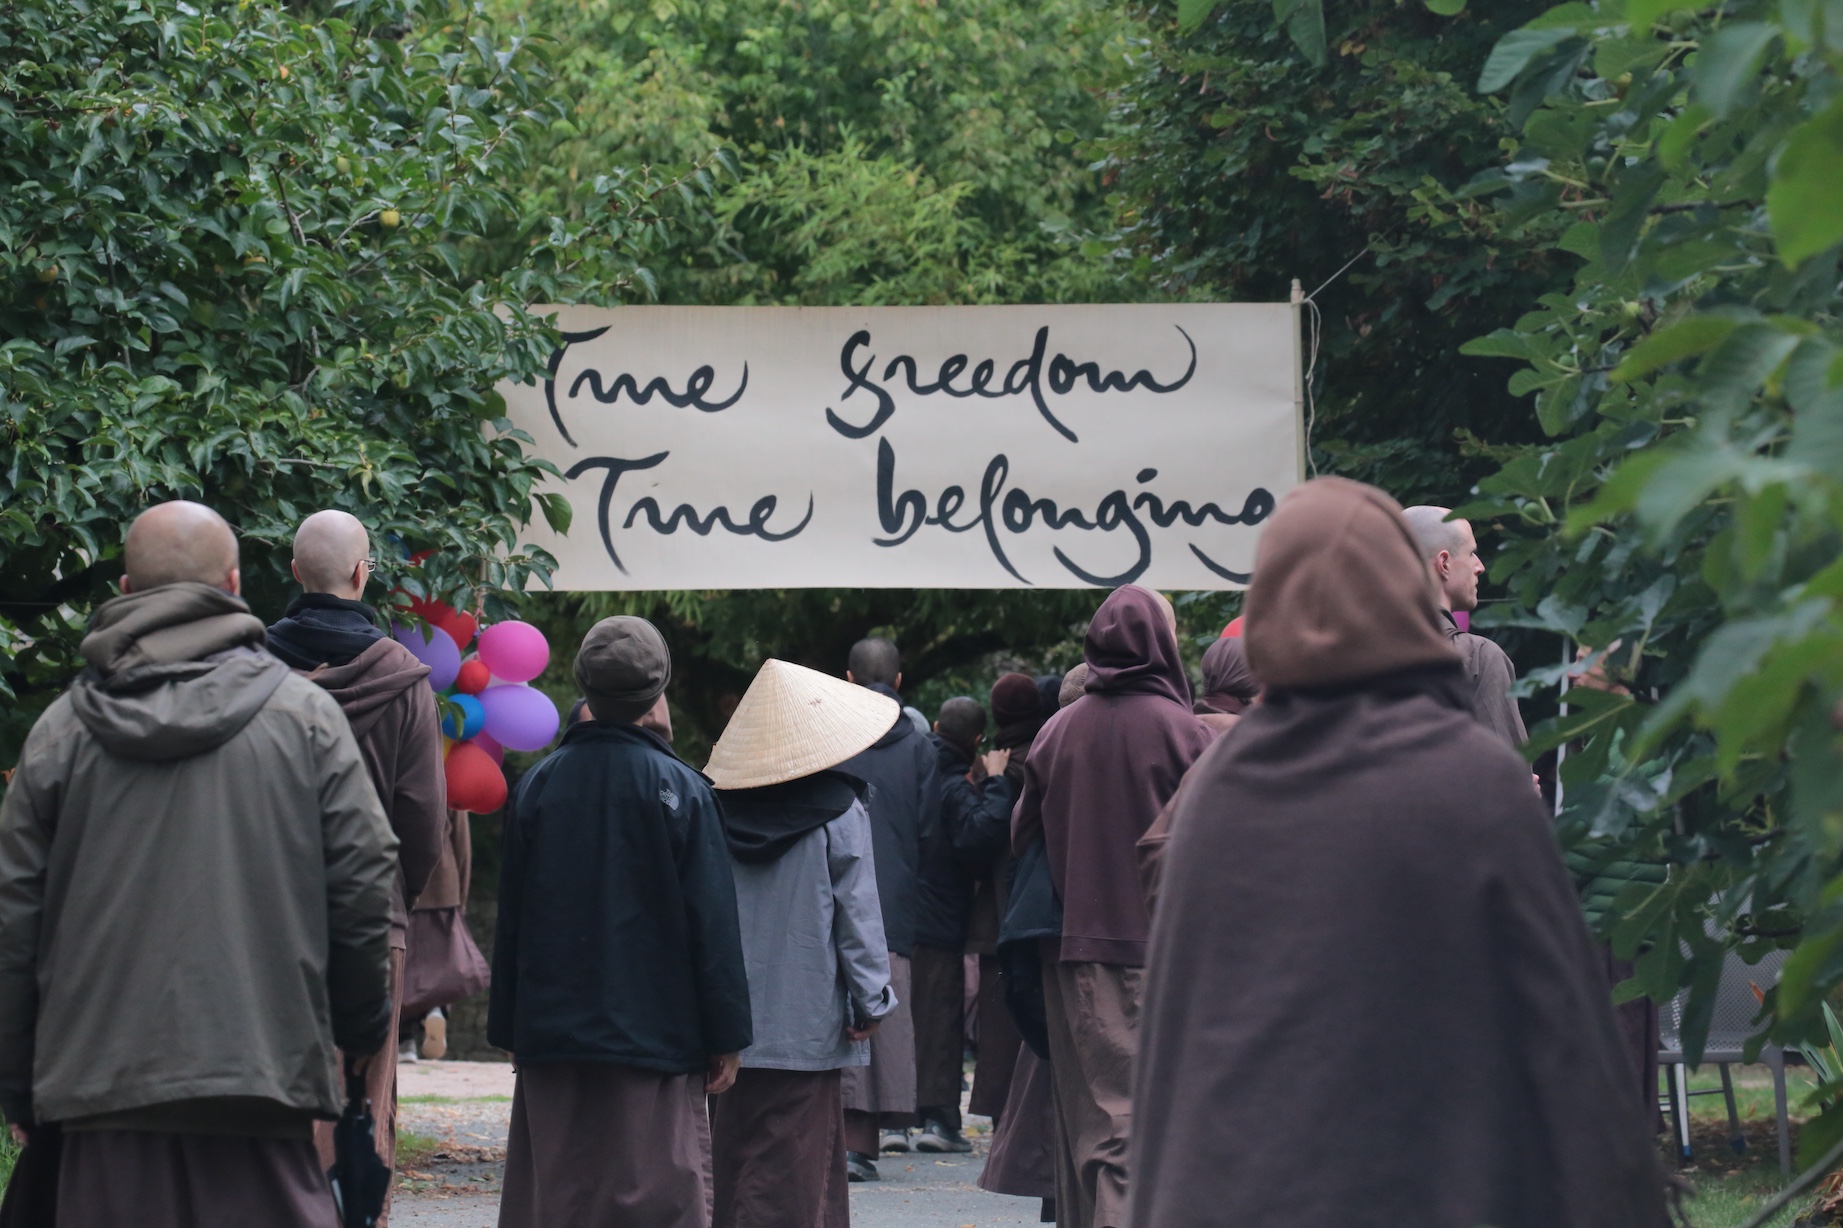 True freedom
True belonging